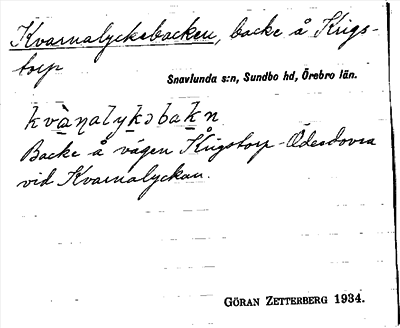 Kvarnalycksbacken, backe å Krigs-
torp
Snavlunda s:n, Sundbo hd, Örebro län.
kvànalyksbakn
Backe å vägen Krigstorp-Ödesdovra
vid Kvarnalyckan.
GÖRAN ZETTERBERG 1934.